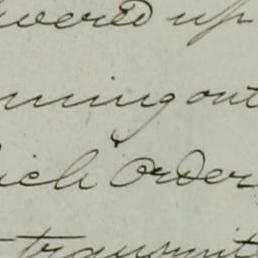 vered up
nning out
ich order
transmit